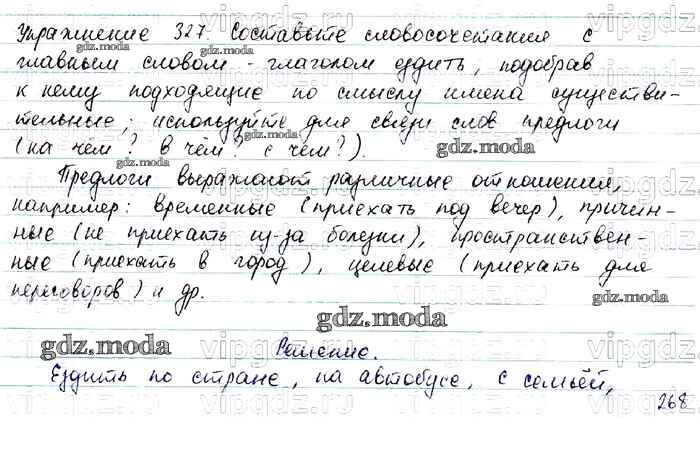 Упражнение 327. Составьте словосочетания с
главным словом - глаголом ездить, подобрав
к нему подходящие по смыслу имена существи-
тельные; используйте для связи слов предлоги
(на чём? в чём? с чем?).
Предлоги выражают различные отношения,
например: временные (приехать под вечер), причин-
ные (не приехать из-за болезни), пространствен-
ные (приехать в город), целевые (приехать для
переговоров) и др.
gdz.moda
gdz.moda
Решение.
Ездить по стране, на автобусе, с семьёй,
268